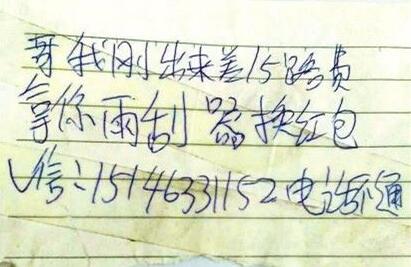 哥我刚出来差15路费
拿你雨刮器换红包
V信:15146331152电话通